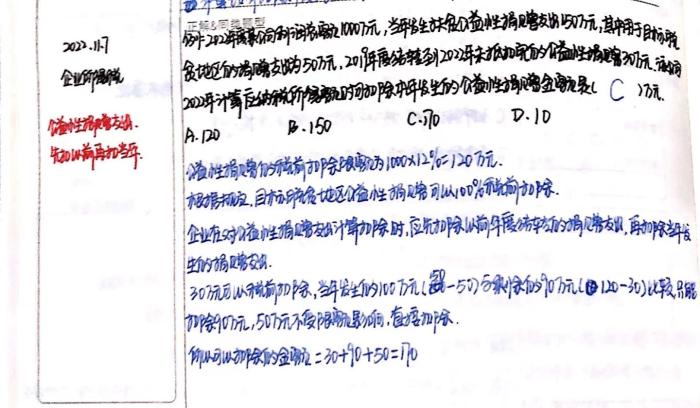 正解&同类题型
2022.11.7
企业所得税
公益性捐赠支出.
先扣以前再扣当年.
公司2022年度会计利润总额1000万元,当年发生公益性捐赠支出150万元,其中用于目标脱
贫地区的捐赠支出为50万元,2019年度结转到2022年未抵扣完的公益性捐赠30万元.
2022年计算应纳税所得额时可扣除本年发生的公益性捐赠金额是( C )万元.
A.120 B.150 C.170 D.10
公益性捐赠的税前扣除限额为1000×12%=120万元.
根据规定,目标脱贫地区公益性捐赠可以100%税前扣除.
企业在对公益性捐赠支出计算扣除时,应先扣除以前年度结转的捐赠支出,再扣除当年发
生的捐赠支出.
30万元可以税前扣除,当年发生的100万元(-50)与剩余的90万元(120-30)比较,只能
扣除90万元,50万元不受限额影响,直接扣除.
所以可以扣除的金额=30+90+50=170